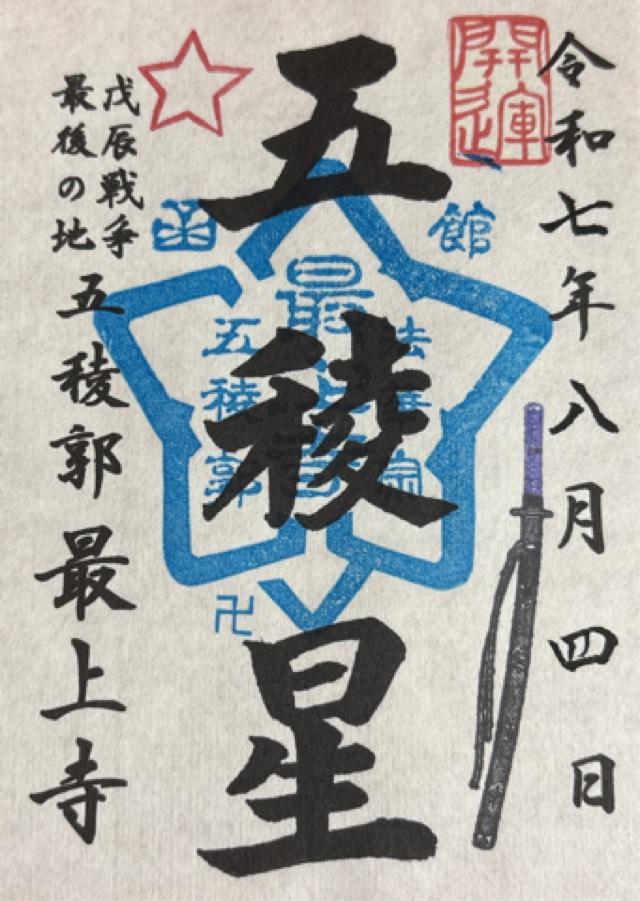 令和七年八月四日
開運
館
函
五稜星
法華宗
最上寺
五稜郭
卍
戊辰戦争
最後の地
五稜郭最上寺